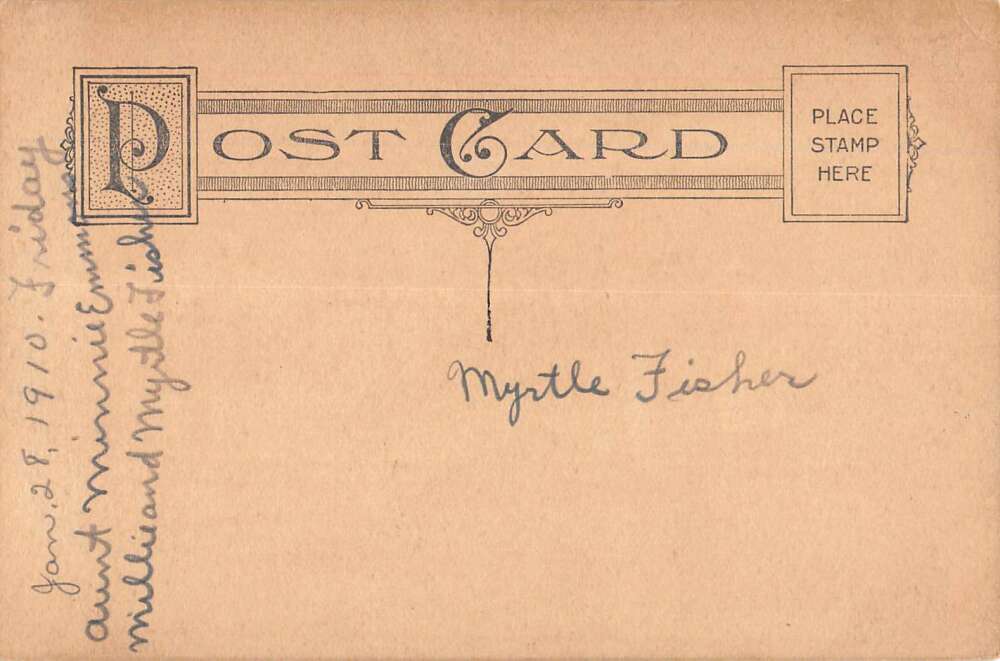 POST CARD
PLACE
STAMP
HERE
Myrtle Fisher
Jan. 28, 1910. Friday
aunt Minnie
Millie and Myrtle Fisher